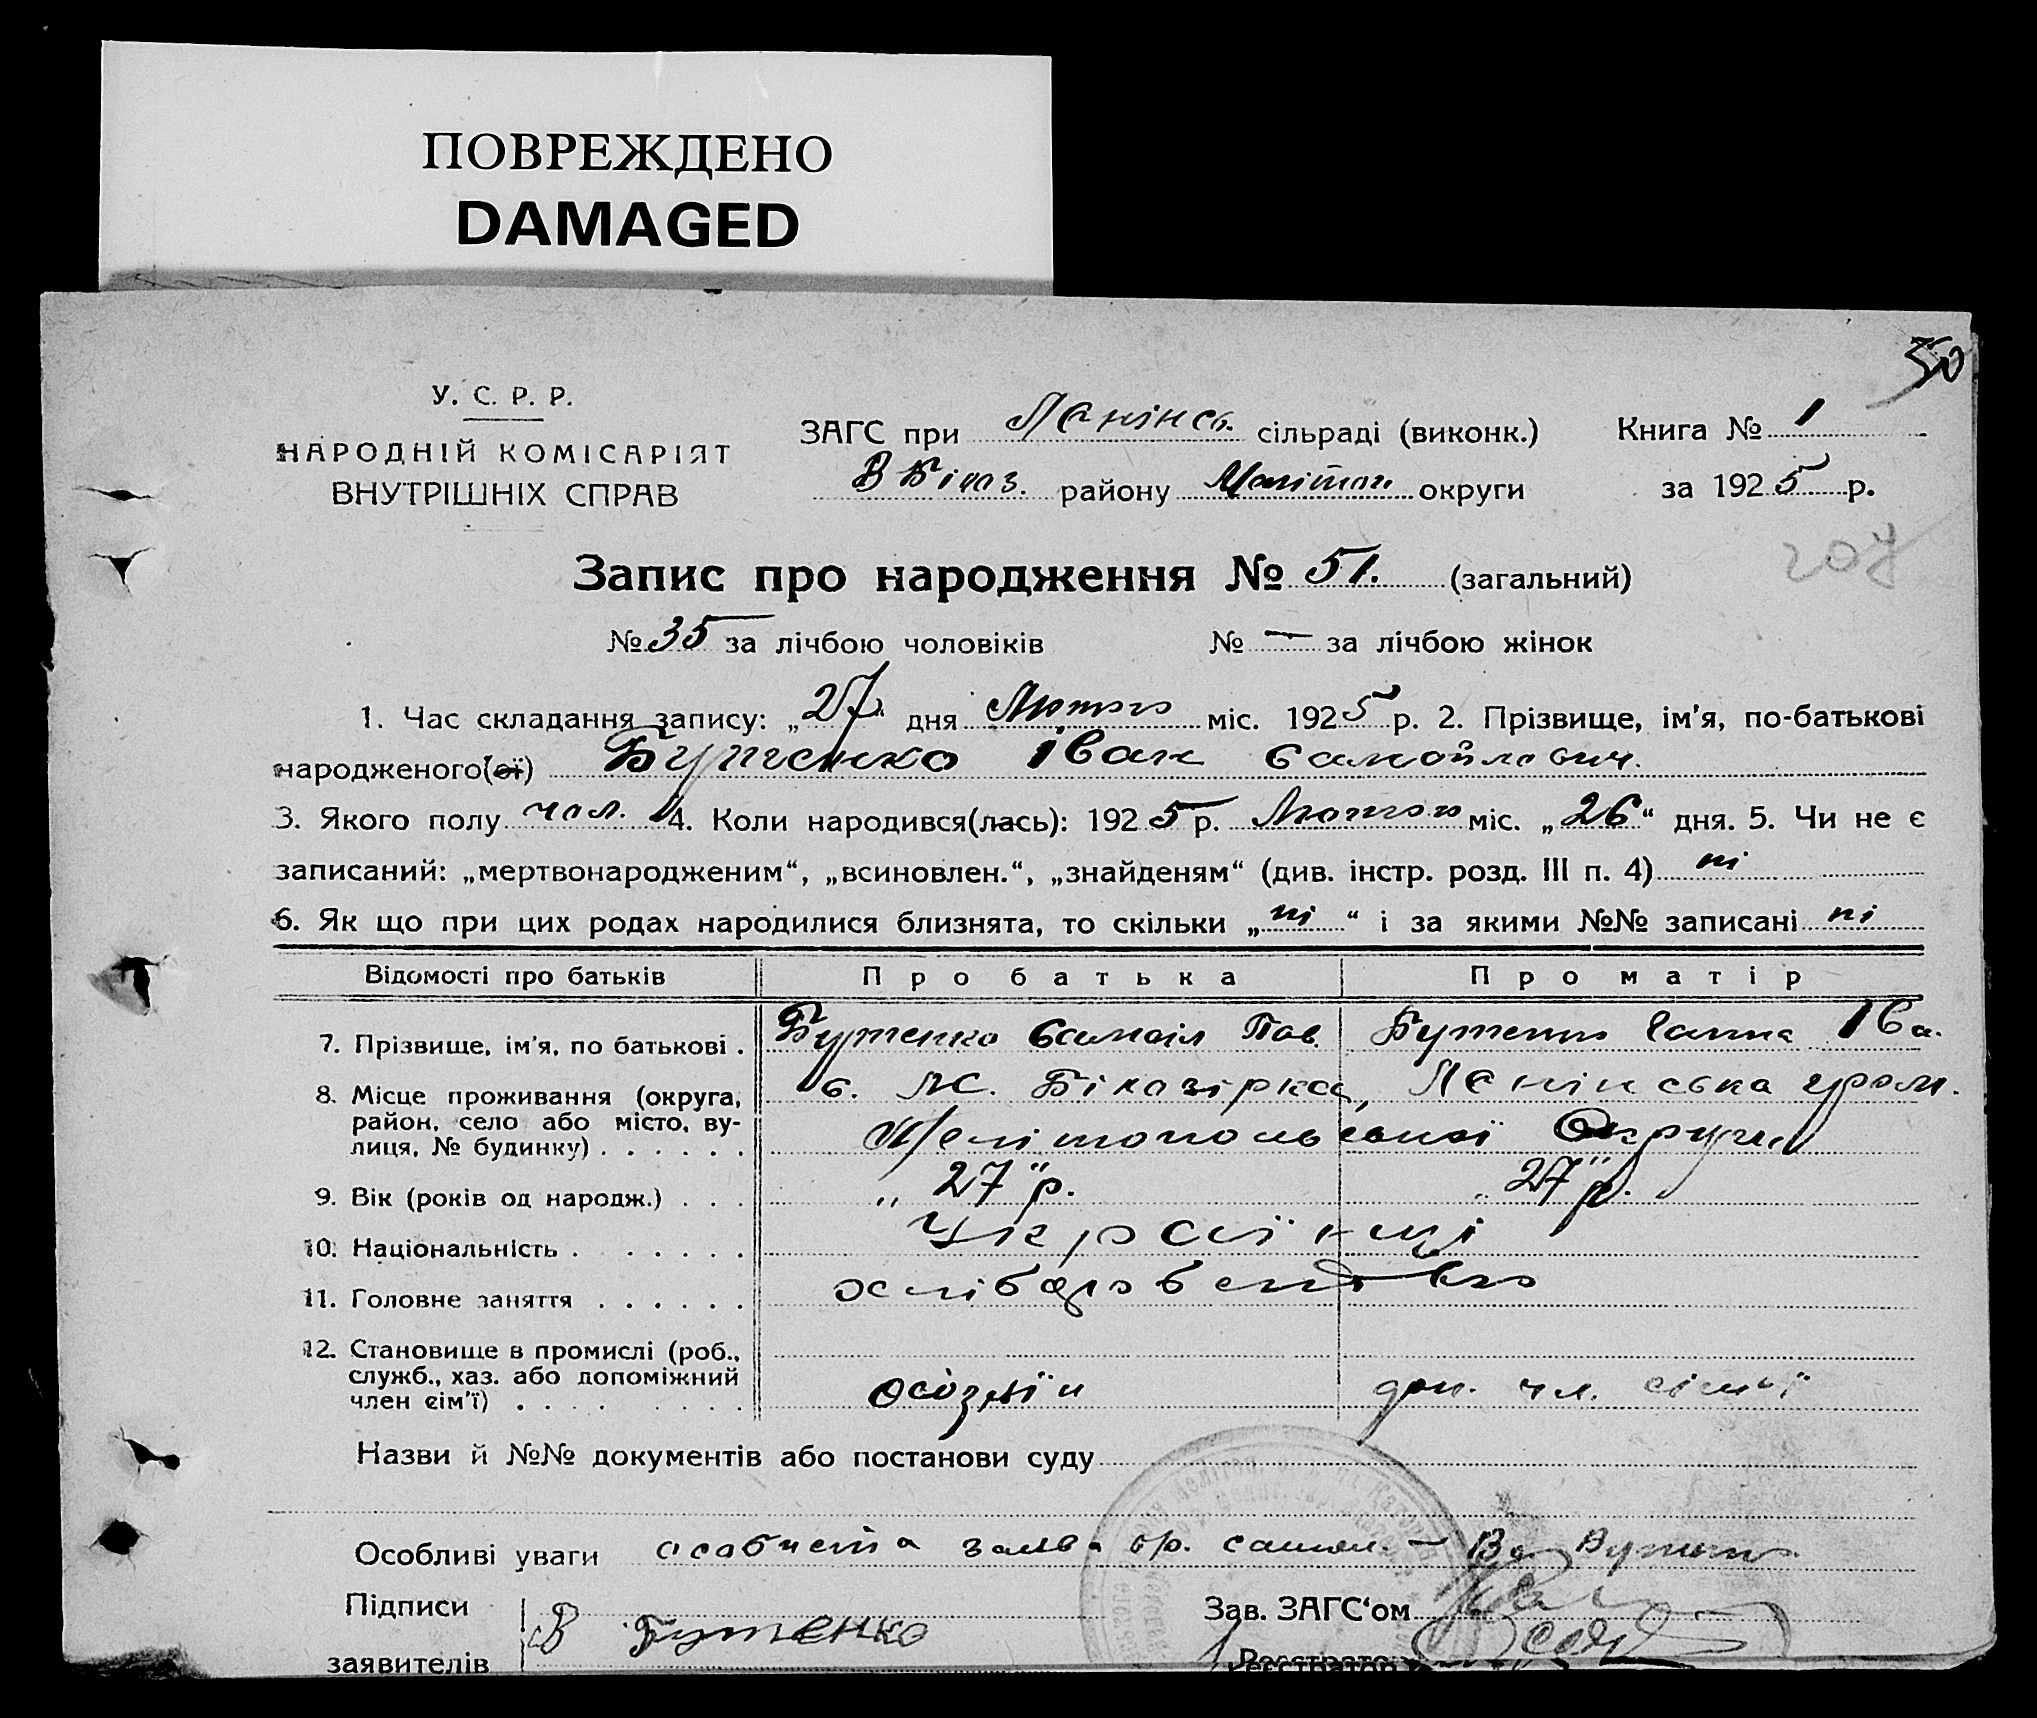 ПОВРЕЖДЕНО
DAMAGED
50
У. С. Р. Р.
НАРОДНІЙ КОМІСАРІЯТ
ВНУТРІШНІХ СПРАВ
ЗАГС при Ланінсь. сільраді (виконк.) Книга № 1
В Білоз. району Меліттоп округи за 1925 р.
207
Запис про народження № 51. (загальний)
№ 35 за лічбою чоловіків № — за лічбою жінок
1. Час складання запису: „27“ дня Лютого міс. 1925 р. 2. Прізвище, ім'я, по-батькові
народженого(ої) Бутенко Іван Самойлович.
3. Якого полу чол. 4. Коли народився(лась): 1925 р. Лютого міс. „26“ дня. 5. Чи не є
записаний: „мертвонародженим“, „всиновлен.“, „знайденям“ (див. інстр. розд. III п. 4) ні
6. Як що при цих родах народилися близнята, то скільки „ні“ і за якими №№ записані ні
Відомості про батьків Про батька Про матір
7. Прізвище, ім'я, по батькові . Бутенко Самоіл Пав. Бутенко Ганна Іва.
8. Місце проживання (округа, с. М. Білазірка, Ленінська гром.
район, село або місто, ву-
лиця, № будинку) . . . . . . Мелітопольської Округи
9. Вік (років од народж.) . . . „27" р. „27" р.
10. Національність . . . . . . . Українці
11. Головне заняття . . . . . . хліборобство
12. Становище в промислі (роб.,
служб., хаз. або допоміжний
член сім'ї) . . . . . . . . дом. чл. сімьї
Назви й №№ документів або постанови суду
Особливі уваги особиста заява гр. самом. —
Підписи Зав. ЗАГС‘ом
заявителів Бутенко Реєстратор